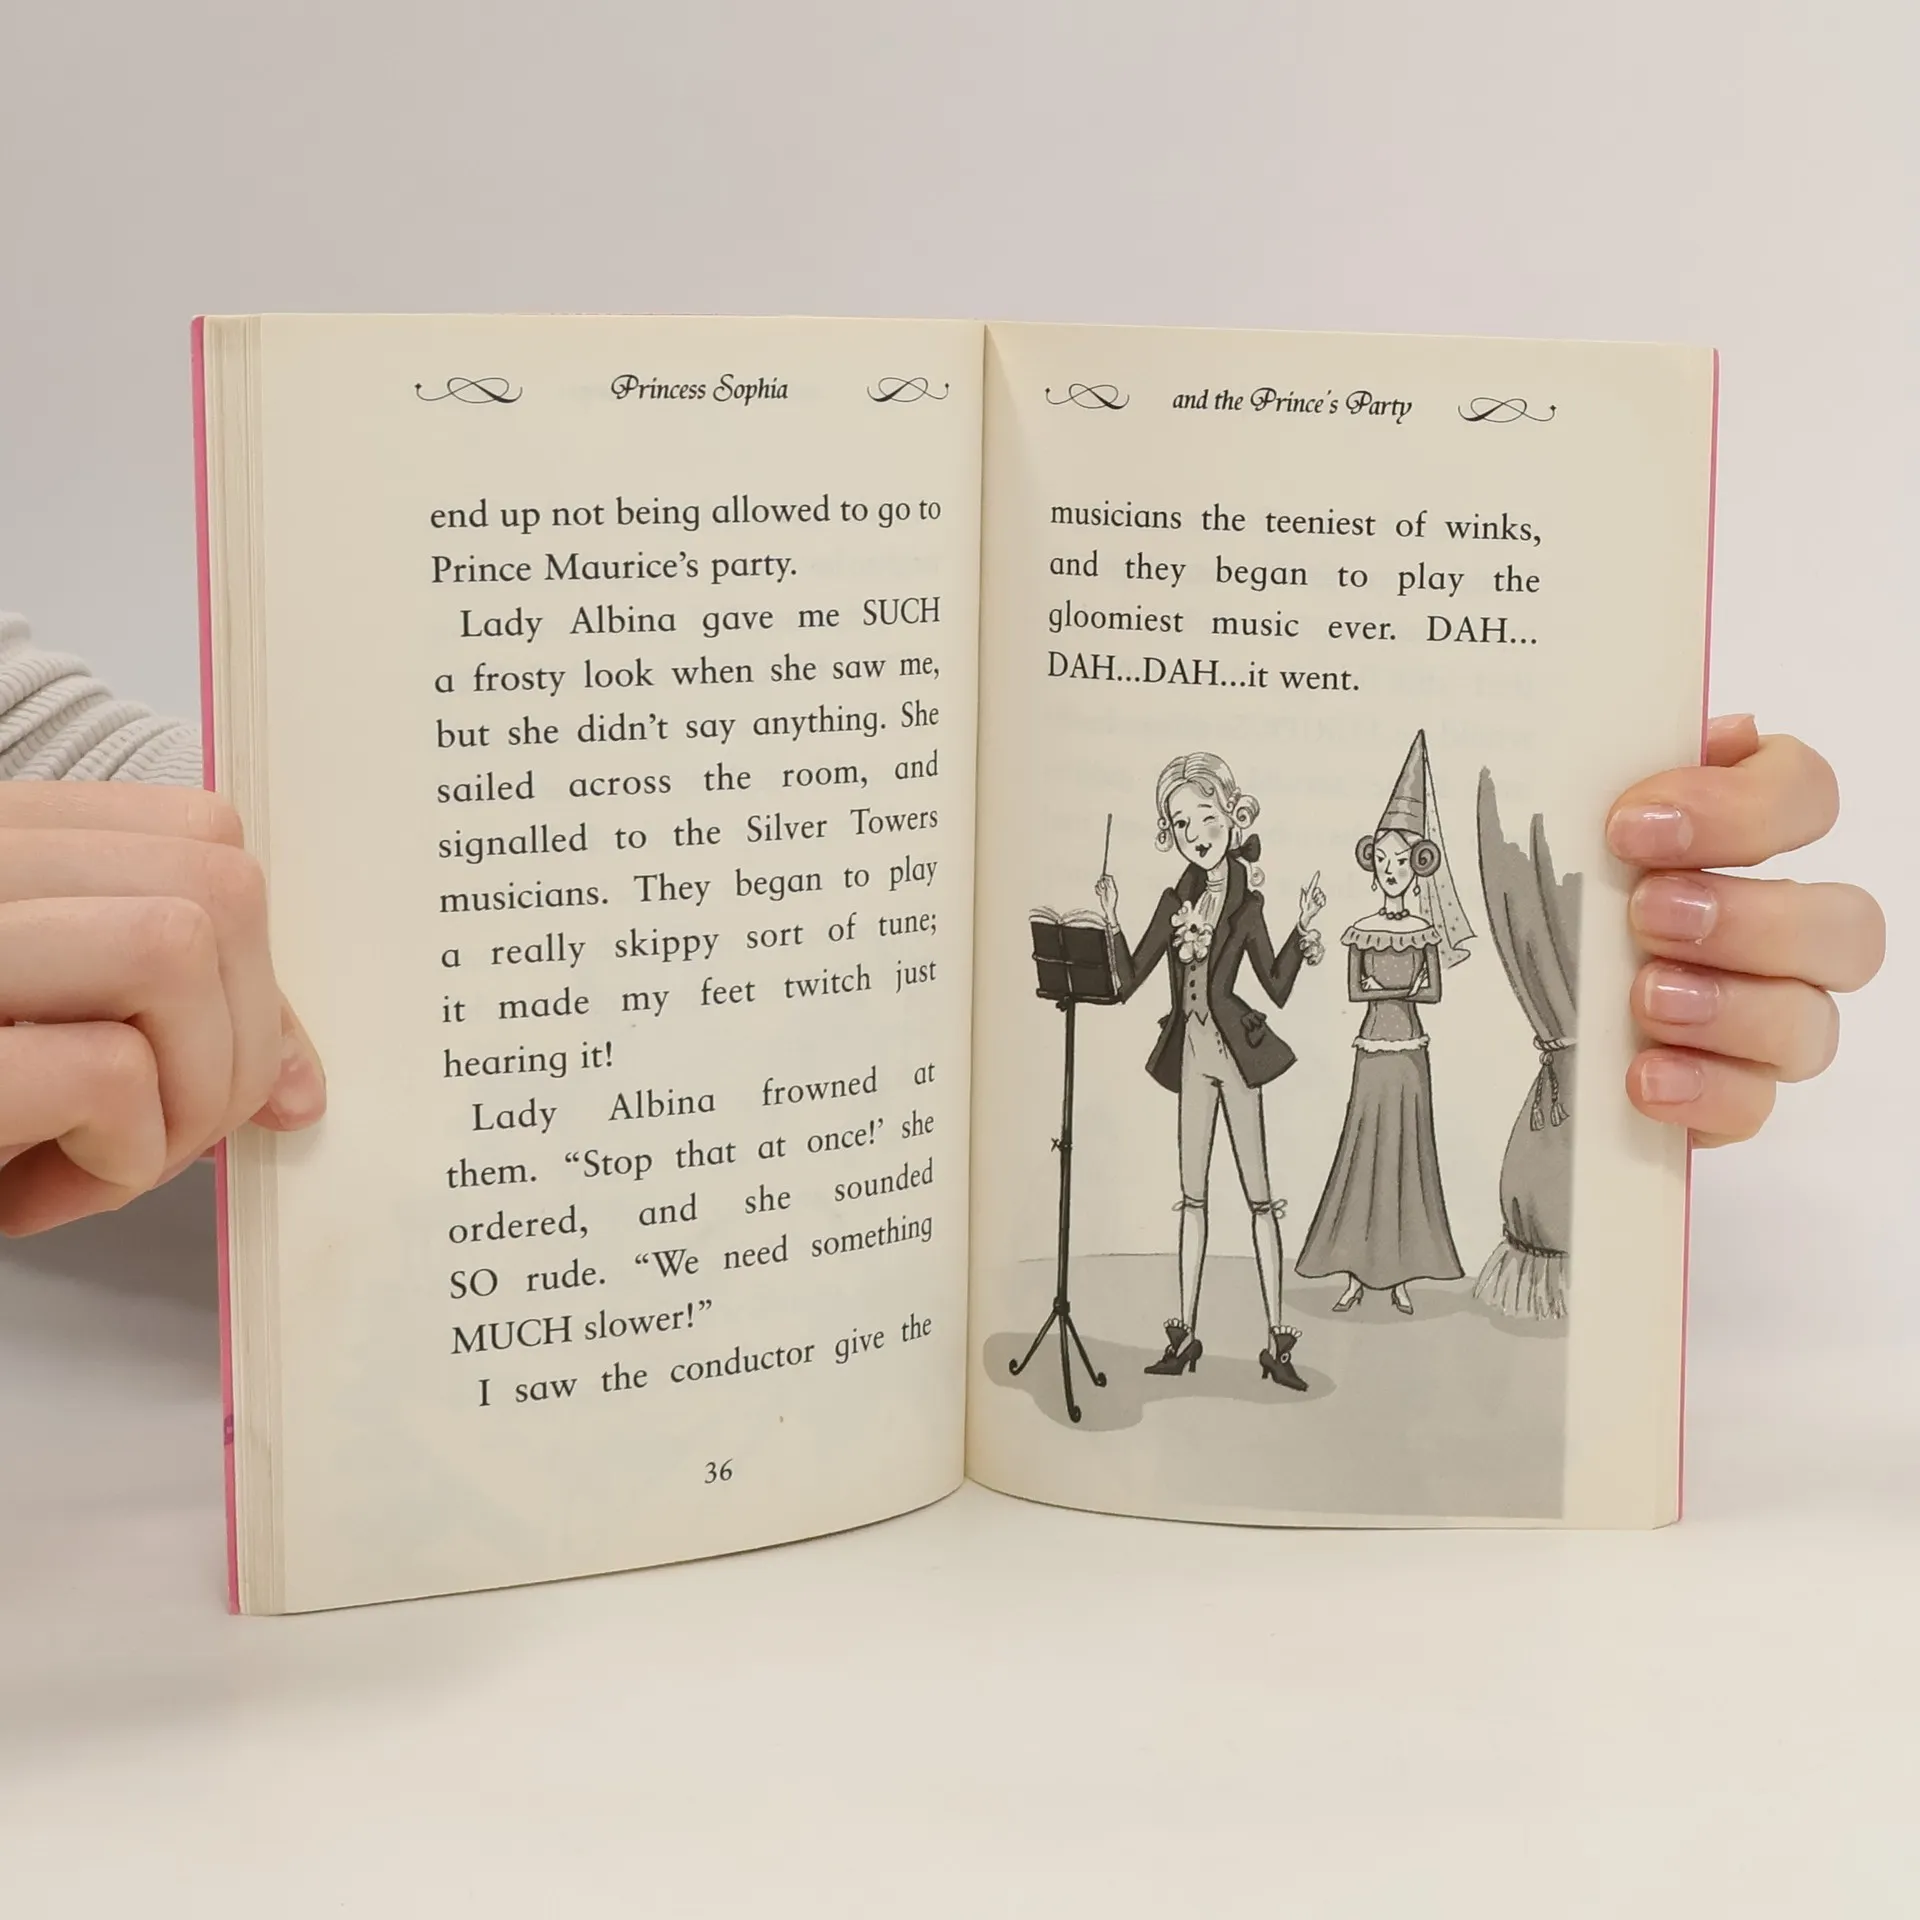 Princess Sophia
end up not being allowed to go to
Prince Maurice's party.
Lady Albina gave me SUCH
a frosty look when she saw me,
but she didn't say anything. She
sailed across the room, and
signalled to the Silver Towers
musicians. They began to play
a really skippy sort of tune;
it made my feet twitch just
hearing it!
Lady Albina frowned at
them. “Stop that at once!’ she
ordered, and she sounded
SO rude. “We need something
MUCH slower!”
I saw the conductor give the
36
and the Prince's Party
musicians the teeniest of winks,
and they began to play the
gloomiest music ever. DAH...
DAH...DAH...it went.